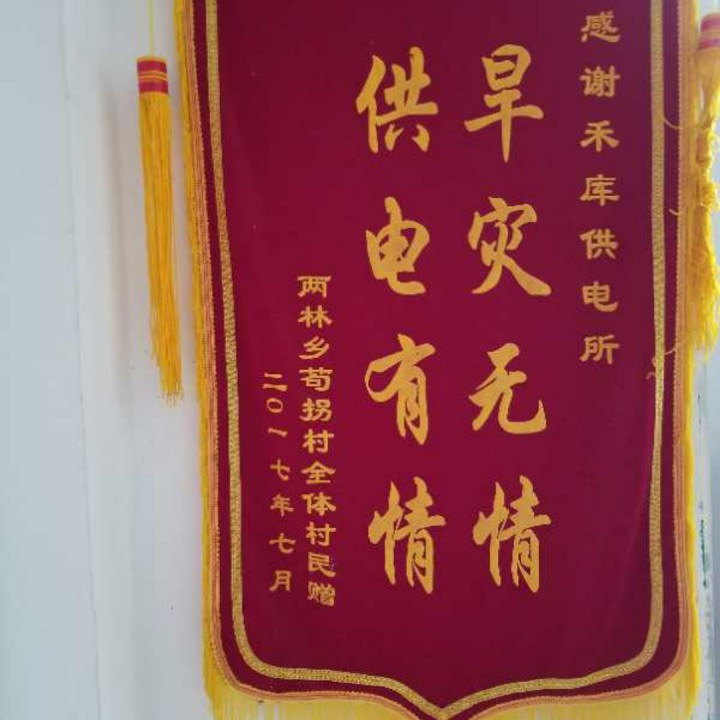 感谢禾库供电所
旱灾无情
供电有情
两林乡苟拐村全体村民赠
二〇一七年七月